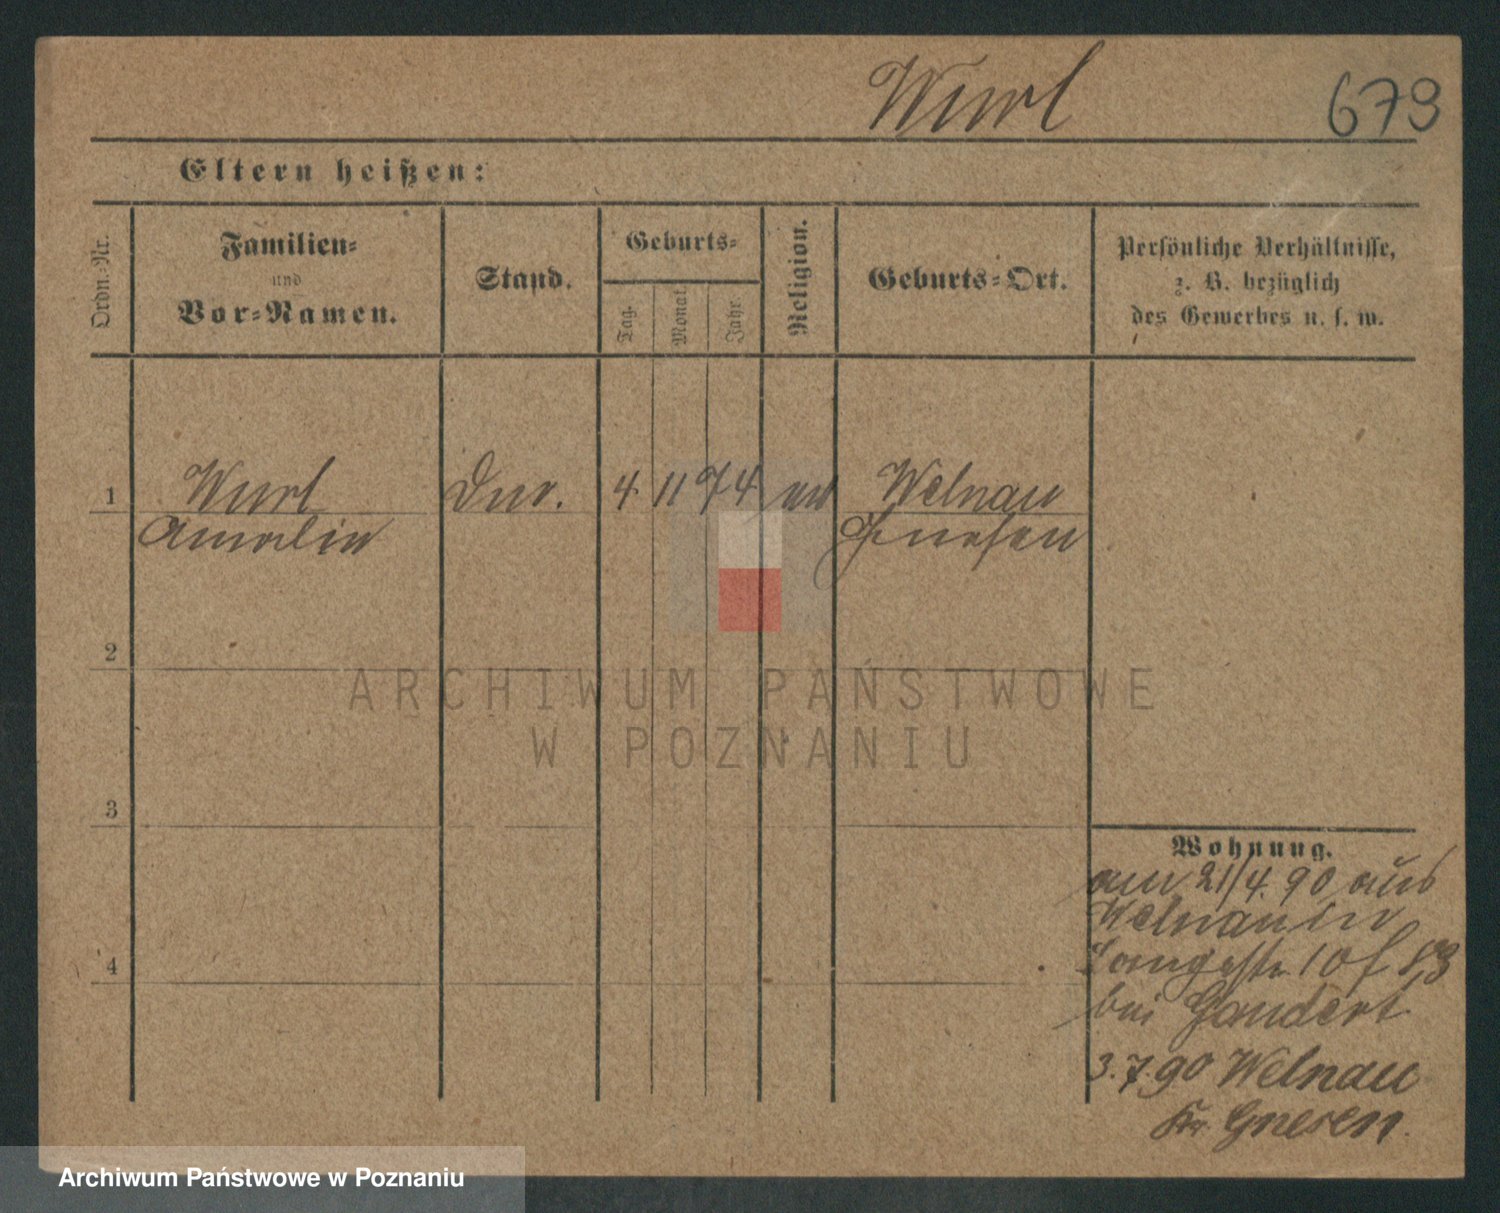 Wurl
679
Eltern heißen:
Ordn.-Nr.
Familien-
und
Vor-Namen.
Stand.
Geburts-
Tag.
Monat
Jahr.
Religion.
Geburts-Ort.
Persönliche Verhältnisse,
z. B. bezüglich
des Gewerbes u. s. w.
1
Wurl
Amalie
4 11 74
Welnau
Gnesen
2
ARCHIWUM PAŃSTWOWE
W POZNANIU
3
4
Wohnung.
am 21/4.90 aus
Welnau in
Langestr 10
bei Gaudert
3.7.90 Welnau
Kr. Gnesen.
Archiwum Państwowe w Poznaniu